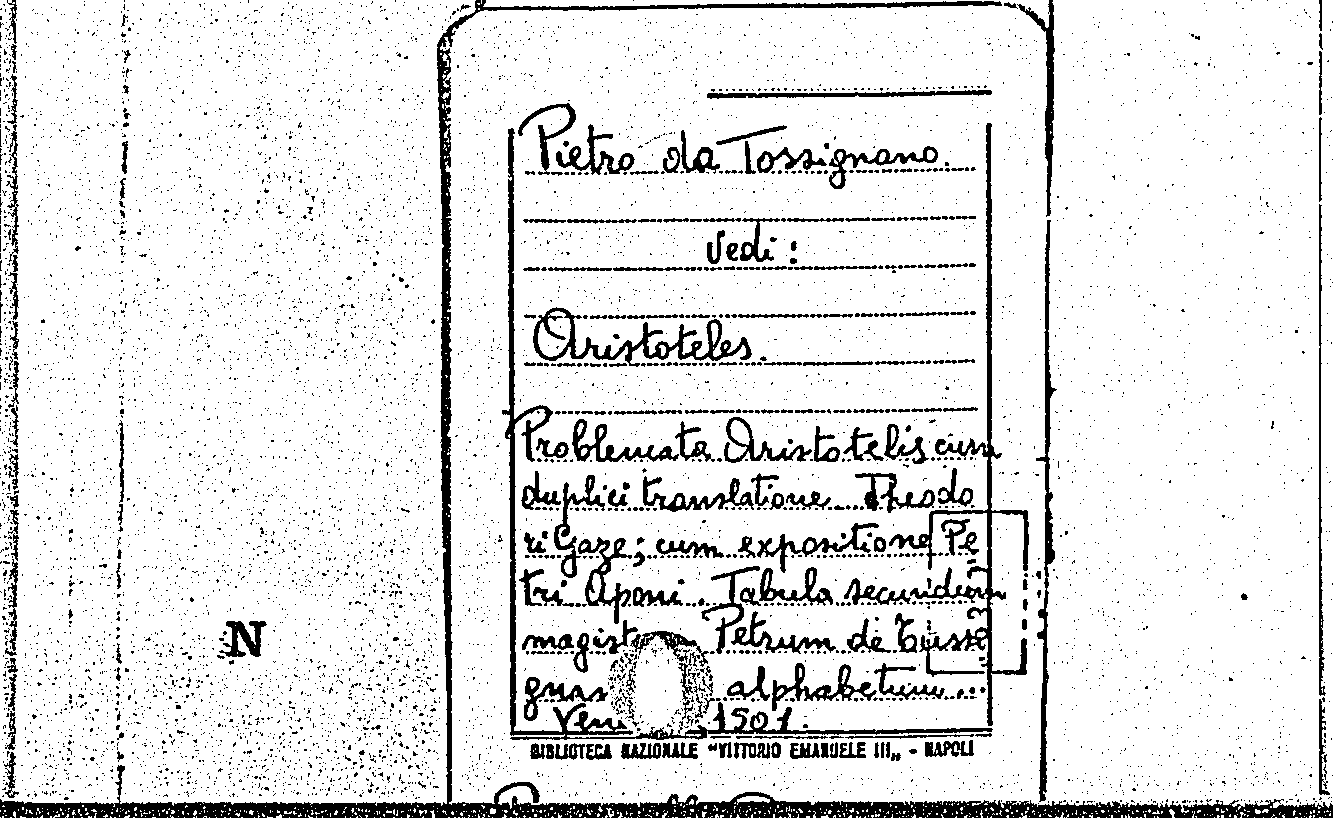 Pietro da Tossignano.
vedi :
Aristoteles.
Problemata Aristotelis cum
duplici translatione Theodo
ri Gaze; cum expositione Pe
tri Aponi. Tabula secundum
Petrum de Tusse
alphabetum ...
1501.
BIBLIOTECA NAZIONALE "VITTORIO EMANUELE III„ - NAPOLI
N